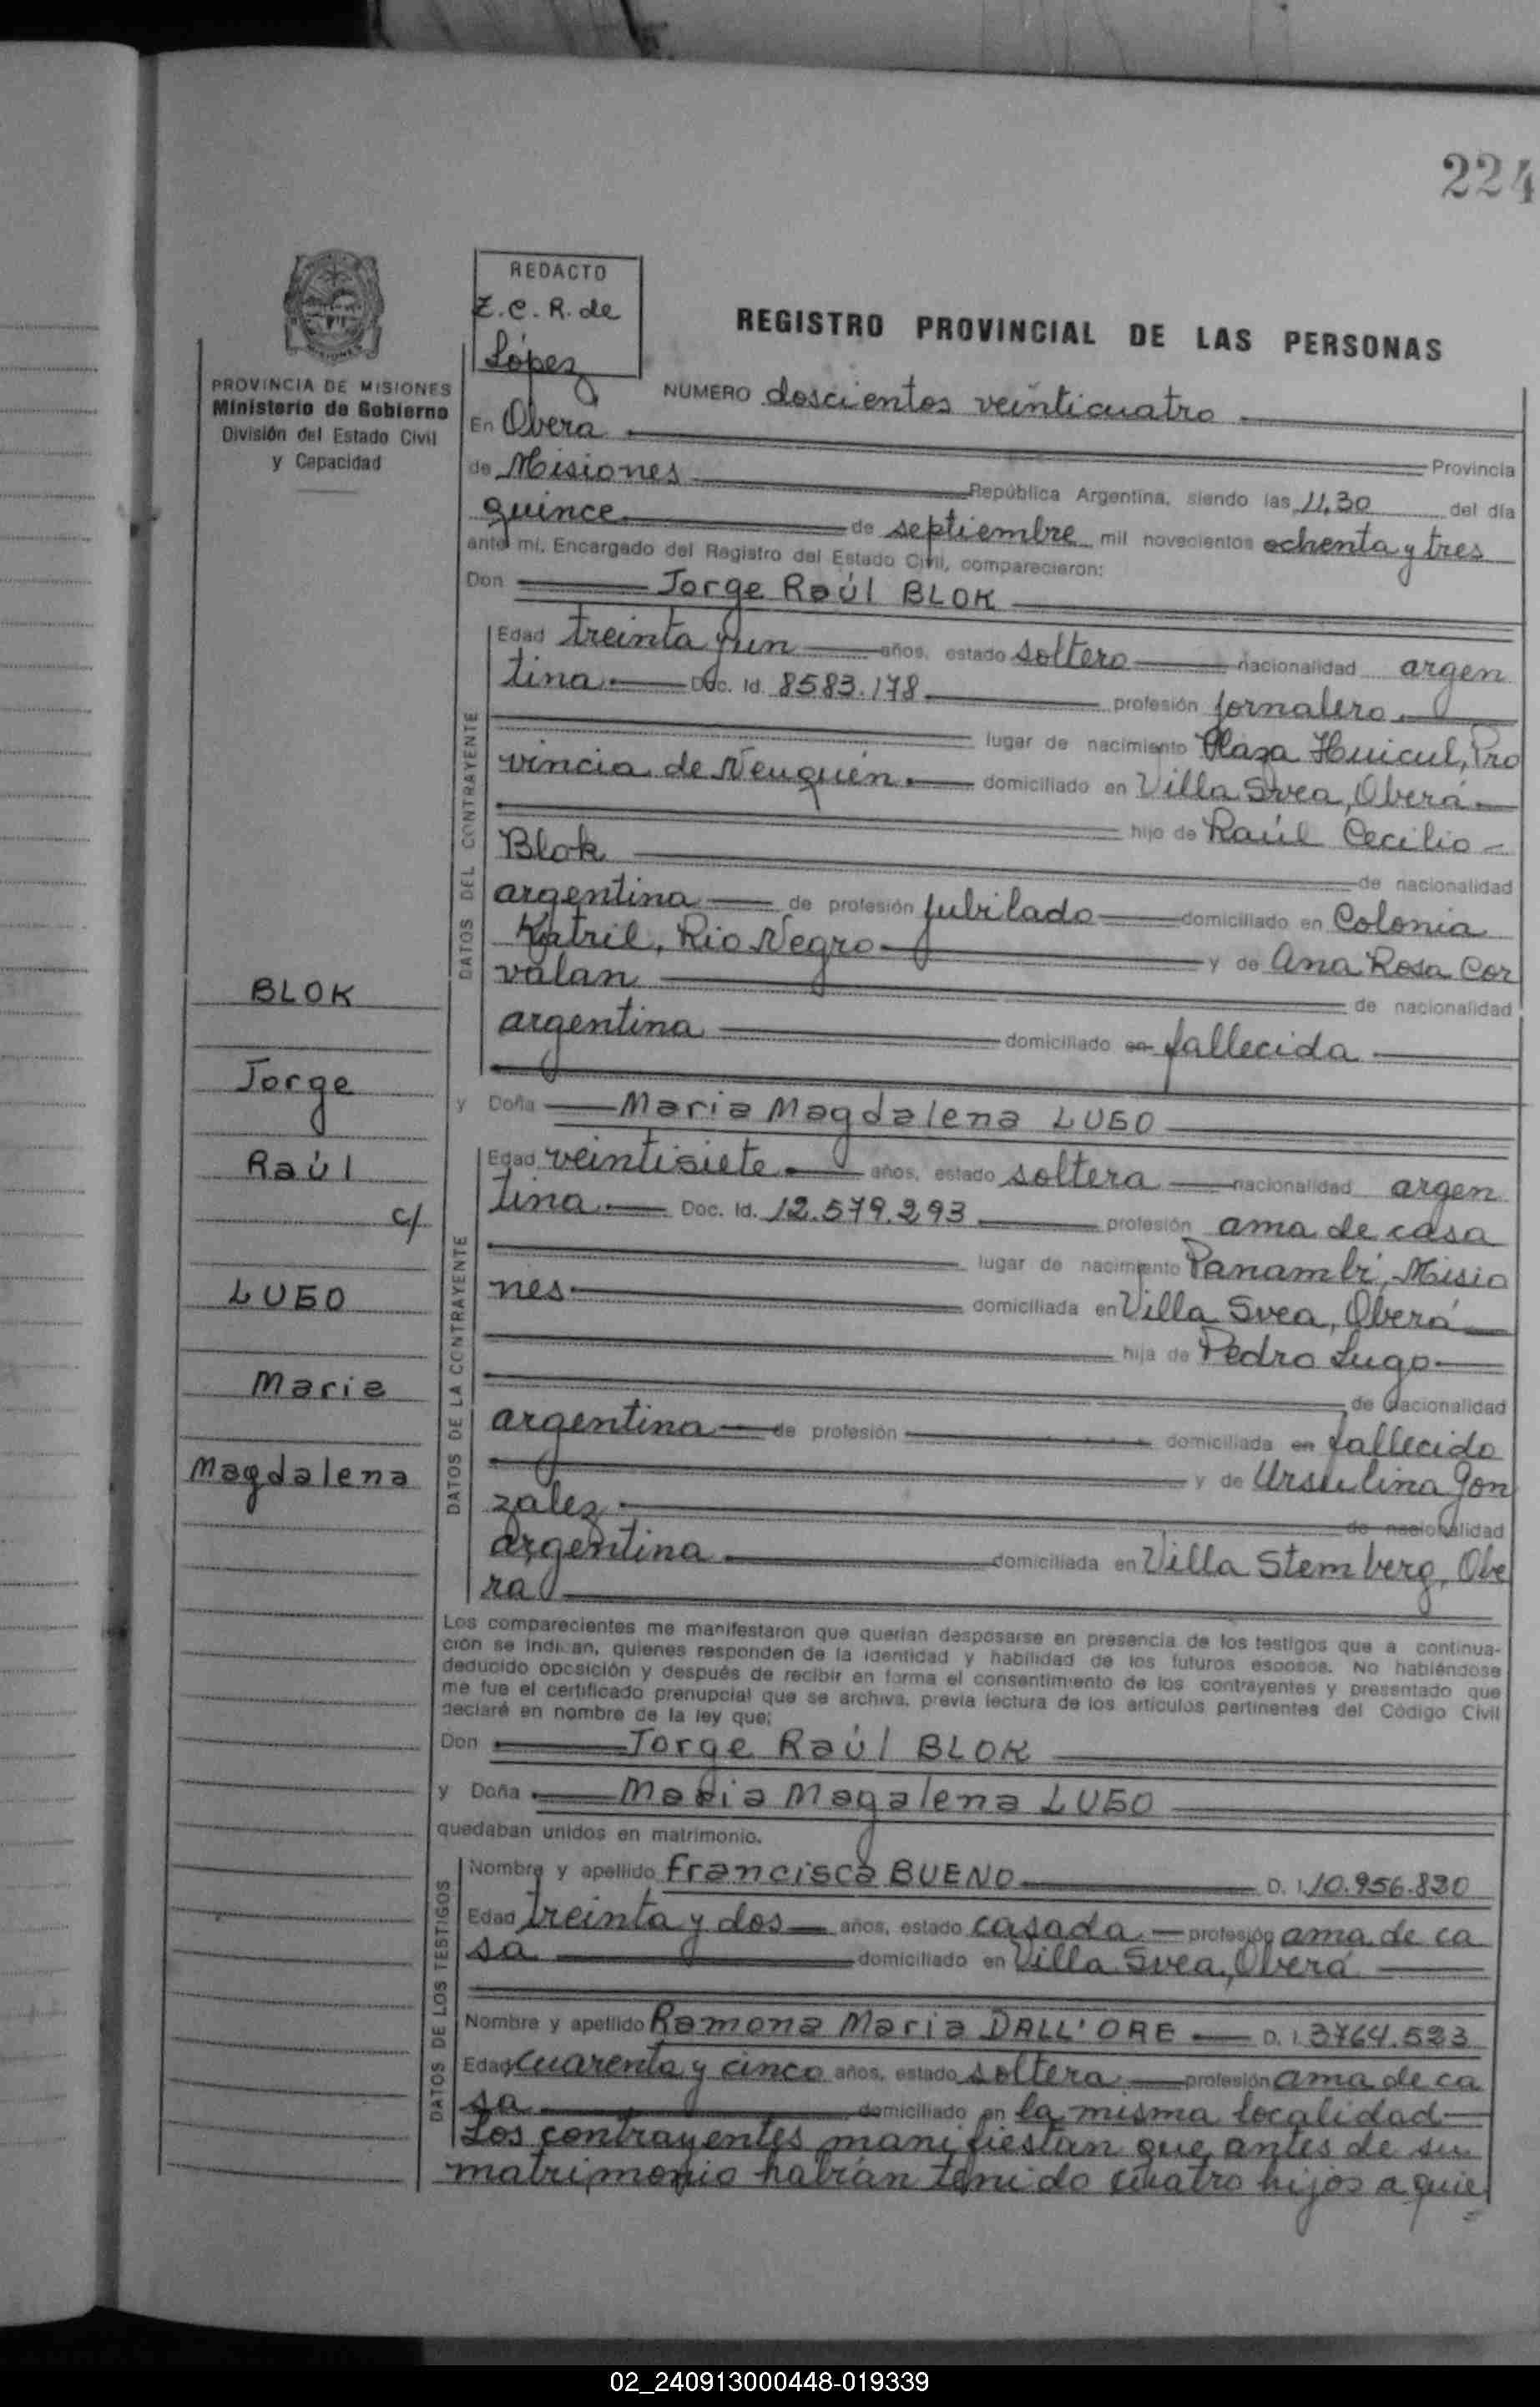 224
REDACTO
Z. C. R. de
López
REGISTRO PROVINCIAL DE LAS PERSONAS
PROVINCIA DE MISIONES
Ministerio de Gobierno
División del Estado Civil
y Capacidad
NUMERO doscientos veinticuatro
En Obera Provincia
de Misiones República Argentina, siendo las 11,30 del día
quince de septiembre mil novecientos ochenta y tres
ante mí, Encargado del Registro del Estado Civil, comparecieron:
Don Jorge Raúl BLOK
DATOS DEL CONTRAYENTE
Edad treinta y un años, estado soltero nacionalidad argen
tina Doc. Id. 8583.178 profesión jornalero
lugar de nacimiento Plaza Huicul, Pro
vincia de Neuquén domiciliado en Villa Svea, Oberá
hijo de Raúl Cecilio
Blok de nacionalidad
argentina de profesión jubilado domiciliado en Colonia
Katril, Rio Negro y de Ana Rosa Cor
valan de nacionalidad
argentina domiciliado en fallecida
BLOK
Jorge
Raúl
c/
LUGO
Maria
Magdalena
y Doña Maria Magdalena LUGO
DATOS DE LA CONTRAYENTE
Edad veintisiete años, estado soltera nacionalidad argen
tina Doc. Id. 12.579.293 profesión ama de casa
lugar de nacimiento Panambí, Misio
nes domiciliada en Villa Svea, Oberá
hija de Pedro Lugo
de nacionalidad
argentina de profesión domiciliada en fallecido
y de Ursulina Gon
zalez de nacionalidad
argentina domiciliada en Villa Stemberg, Obe
ra
Los comparecientes me manifestaron que querían desposarse en presencia de los testigos que a continua-
ción se indican, quienes responden de la identidad y habilidad de los futuros esposos. No habiéndose
deducido oposición y después de recibir en forma el consentimiento de los contrayentes y presentado que
me fue el certificado prenupcial que se archiva, previa lectura de los artículos pertinentes del Código Civil
declaré en nombre de la ley que:
Don Jorge Raúl BLOK
y Doña Maria Magalena LUGO
quedaban unidos en matrimonio.
DATOS DE LOS TESTIGOS
Nombre y apellido Francisca BUENO D. I. 10.956.830
Edad treinta y dos años, estado casada profesión ama de ca
sa domiciliado en Villa Svea, Oberá
Nombre y apellido Ramona Maria DALL' ORE D. I. 3764.523
Edad cuarenta y cinco años, estado soltera profesión ama de ca
sa domiciliado en la misma localidad
Los contrayentes manifiestan que antes de su
matrimonio habían tenido cuatro hijos a quie
02_240913000448-019339